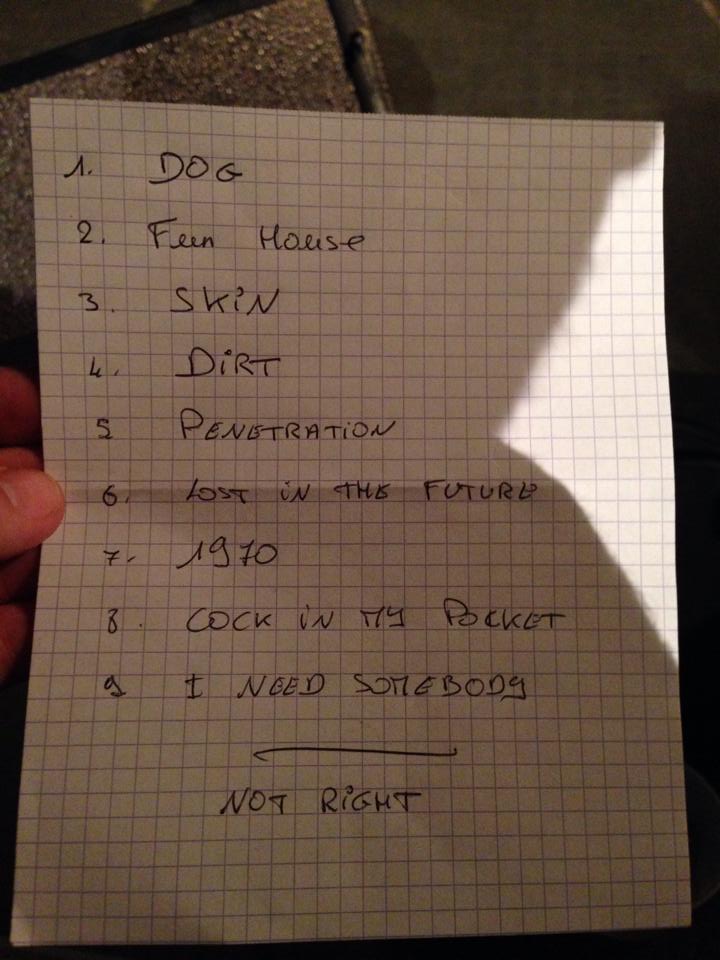 1. DOG
2. Fun House
3. SKiN
4. DiRT
5 PENETRATiON
6. LOST iN THE FUTURE
7. 1970
8. COCK iN MY POCKET
9 I NEED SOMEBODY
NOT RiGHT